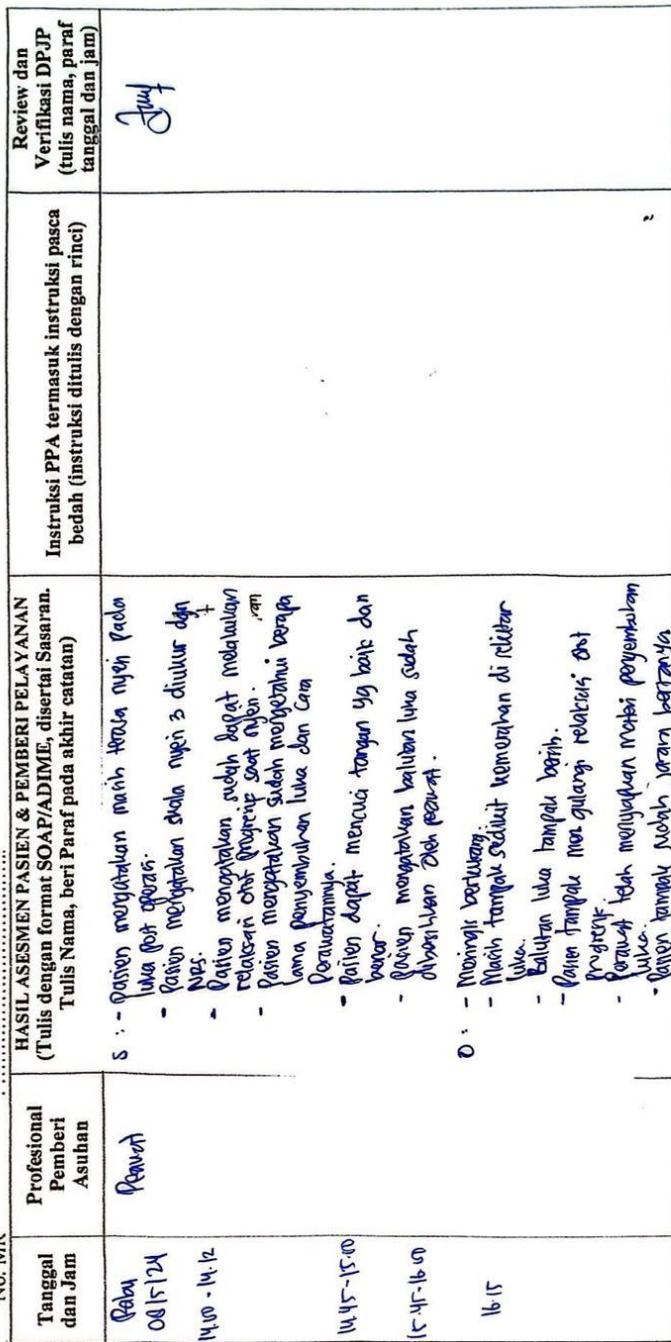 No. MR ..............................
Tanggal
dan Jam
Profesional
Pemberi
Asuhan
HASIL ASESMEN PASIEN & PEMBERI PELAYANAN
(Tulis dengan format SOAP/ADIME, disertai Sasaran.
Tulis Nama, beri Paraf pada akhir catatan)
Instruksi PPA termasuk instruksi pasca
bedah (instruksi ditulis dengan rinci)
Review dan
Verifikasi DPJP
(tulis nama, paraf
tanggal dan jam)
Rabu
08/5/24
14.00 - 14.12
14.45-15.00
15.45-16.00
16.15
Perawat
S : - Pasien mengatakan masih terasa nyeri pada
luka post operasi.
- Pasien mengatakan skala nyeri 3 diukur dgn
NRS.
- Pasien mengatakan sudah dapat melakukan
relaksasi otot progresif saat nyeri.
- Pasien mengatakan sudah mengetahui berapa
lama penyembuhan luka dan cara
Perawatannya.
- Pasien dapat mencuci tangan yg baik dan
benar.
- Pasien mengatakan balutan luka sudah
dibersihkan oleh perawat.
O : - Meringis berkurang
- Masih tampak sedikit kemerahan di sekitar
luka.
- Balutan luka tampak bersih.
- Pasien tampak mengulangi relaksasi otot
progresif.
- Perawat telah menyiapkan materi penyembuhan
luka.
- Pasien tampak sudah jarang bertanya